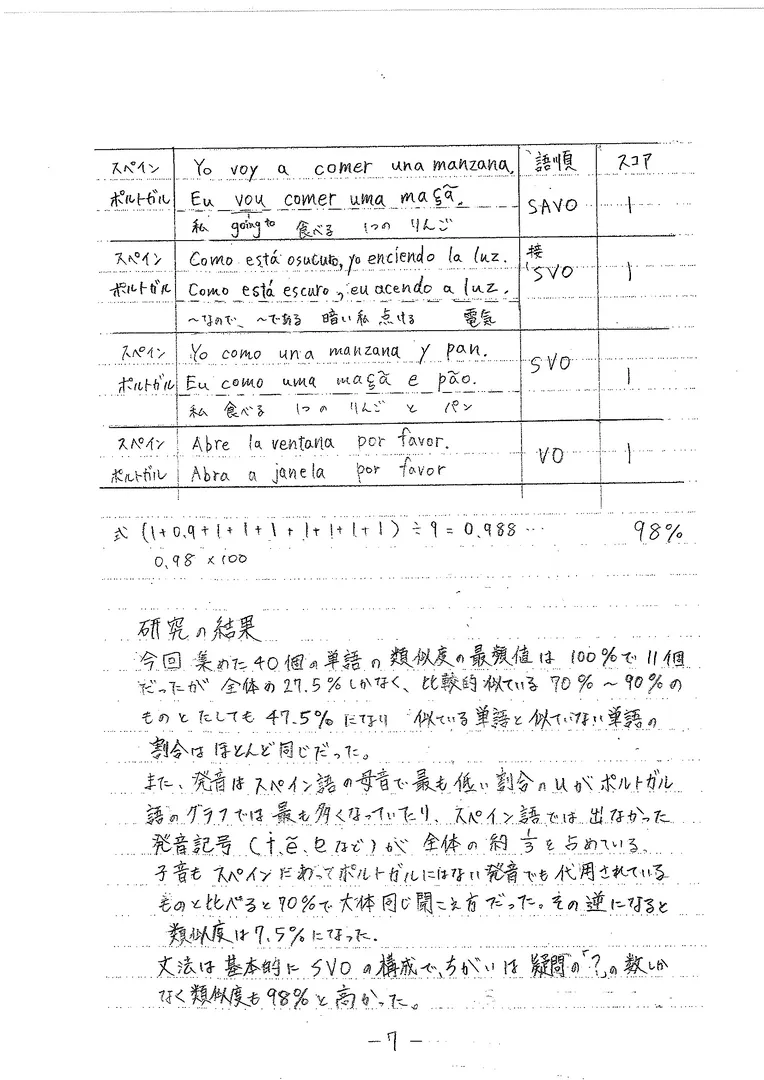 スペイン Yo voy a comer una manzana. 語順 スコア
ポルトガル Eu vou comer uma maçã. SAVO 1
私 going to 食べる 1つの りんご
スペイン Como está osucuto, yo enciendo la luz. 接 SVO 1
ポルトガル Como está escuro, eu acendo a luz.
〜なので、〜である 暗い 私 点ける 電気
スペイン Yo como una manzana y pan. SVO
ポルトガル Eu como uma maçã e pão. 1
私 食べる 1つの りんご と パン
スペイン Abre la ventana por favor. VO 1
ポルトガル Abra a janela por favor
式 (1+0.9+1+1+1+1+1+1+1) ÷ 9 = 0.988… 98%
0.98 × 100
研究の結果
今回 集めた 40個の単語の類似度の最頻値は 100%で 11個
だったが 全体の 27.5%しかなく、比較的似ている 70%〜90%の
ものとたしても 47.5%になり 似ている単語と似ていない単語の
割合は ほとんど同じだった。
また、発音はスペイン語の母音で最も低い割合のuがポルトガル
語のグラフでは最も多くなっていたり、スペイン語では出なかった
発音記号 ( など)が 全体の約 1/3を占めている。
子音も スペインにあってポルトガルにはない発音でも代用されている
ものと比べると 70%で大体同じ聞こえ方だった。その逆になると
類似度は7.5%になった.
文法は基本的に SVOの構成で、ちがいは 疑問の「?」の数しか
なく類似度も98%と高かった。
-7-